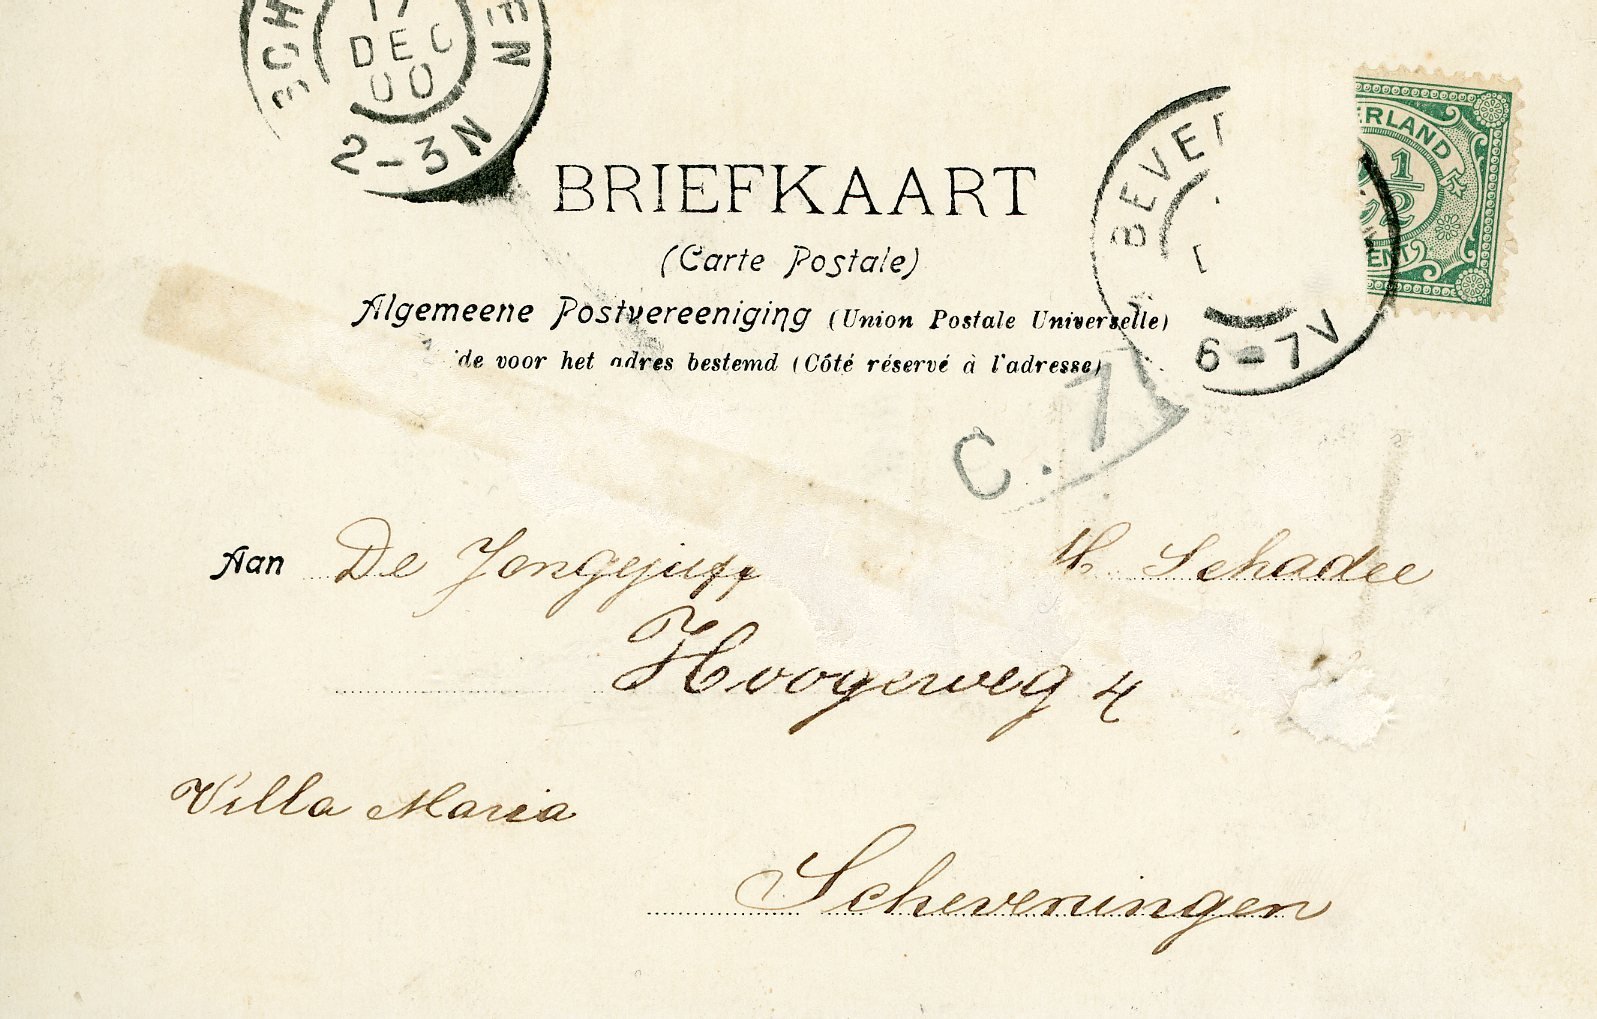 17
DEC
00
2-3N
BEVE
6-7V
ERLAND
1/2
ENT
BRIEFKAART
(Carte Postale)
Algemeene Postvereeniging (Union Postale Universelle)
de voor het adres bestemd (Côté réservé à l'adresse)
C. 7
Aan De Jongejuff H. Schadee
Hoogeweg 4
Villa Maria
Scheveningen